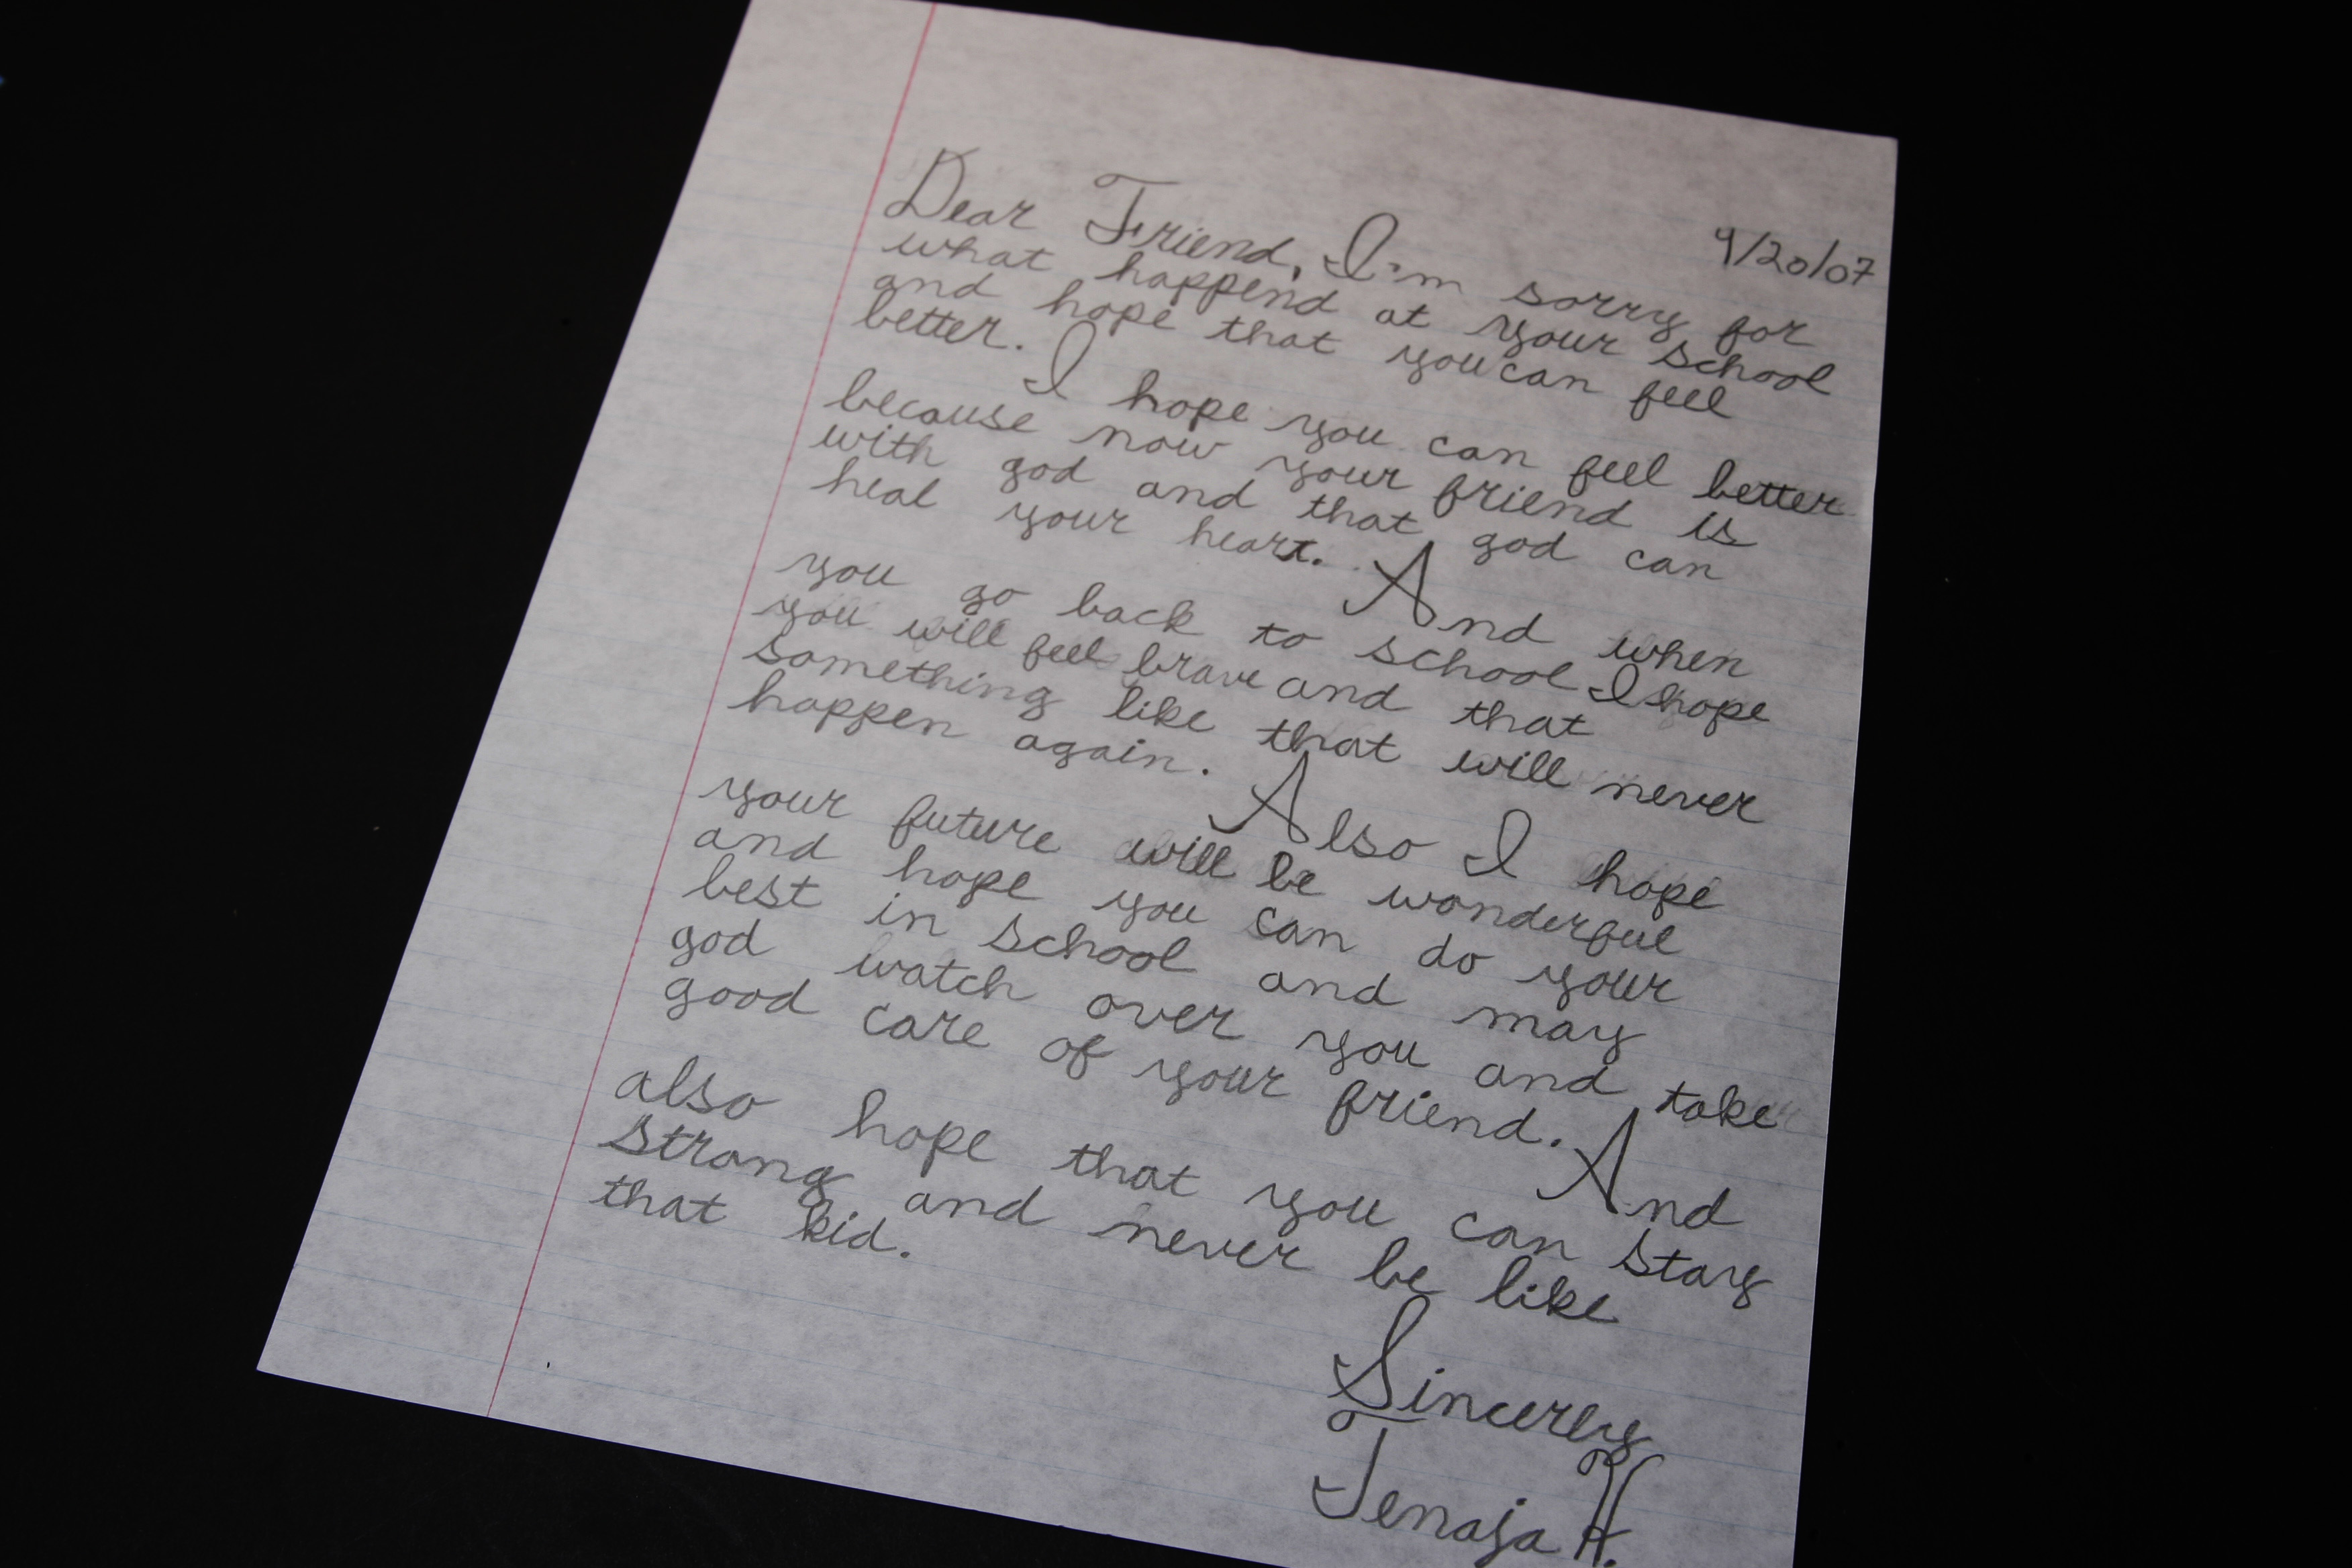 9/20/07
Dear Friend, I'm sorry for
what happend at your school
and hope that you can feel
better.
I hope you can feel better
because now your friend is
with god and that god can
heal your heart.
And when
you go back to school I hope
you will feel brave and that
something like that will never
happen again.
Also I hope
your future will be wonderful
and hope you can do your
best in school and may
god watch over you and take
good care of your friend.
And
also hope that you can stay
strong and never be like
that kid.
Sincerly
Tenaja H.